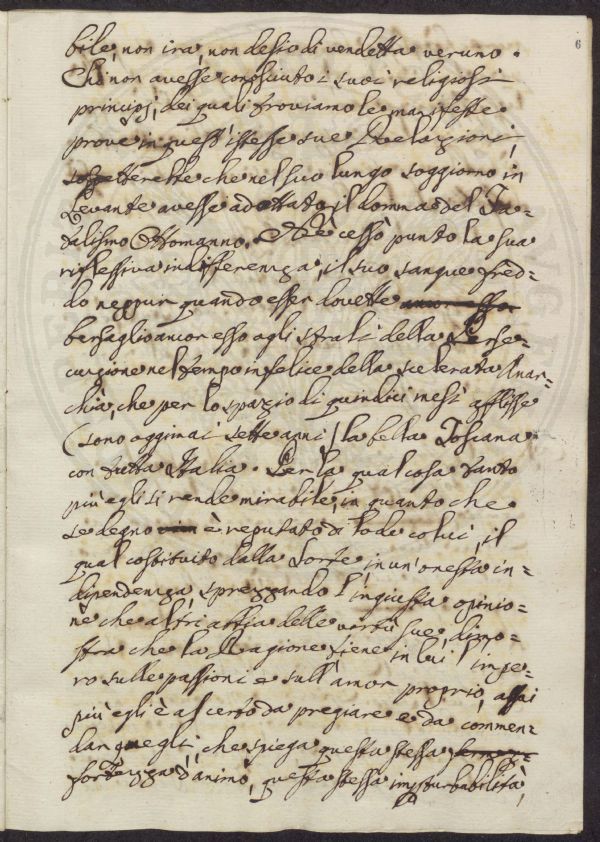 6
bile, non ira, non desio di vendetta veruno.
Chi non avesse conosciuto i suoi religiosi
principj, dei quali troviamo le manifeste
prove in quest'istesse sue Relazioni,
sospetterebbe che nel suo lungo soggiorno in
Levante avesse adottato il domma del Fa=
talismo Ottomanno. Nè cessò punto la sua
riflessiva indifferenza, il suo sangue fred=
do neppur quando esser dovette ancor esso
bersaglio ancor esso agli strali della Perse=
cuzione nel tempo infelice della scelerata Anar=
chia, che per lo spazio di quindici mesi afflisse
(sono oggimai sette anni) la bella Toscana
con tutta Italia. Per la qual cosa tanto
più egli si rende mirabile, in quanto che
se degno è reputato di lode colui, il
qual costituito dalla Sorte in un'onesta in=
dipendenza, sprezzando l'ingiusta opinio=
ne che altri abbia delle virtù sue, dimo=
stra che la Ragione tiene in lui l'impe=
ro sulle passioni e sull'amor proprio, assai
più egli è al certo da pregiare e da commen=
dar quegli, che spiega questa stessa
fortezza d'animo, questa stessa imperturbabilità,